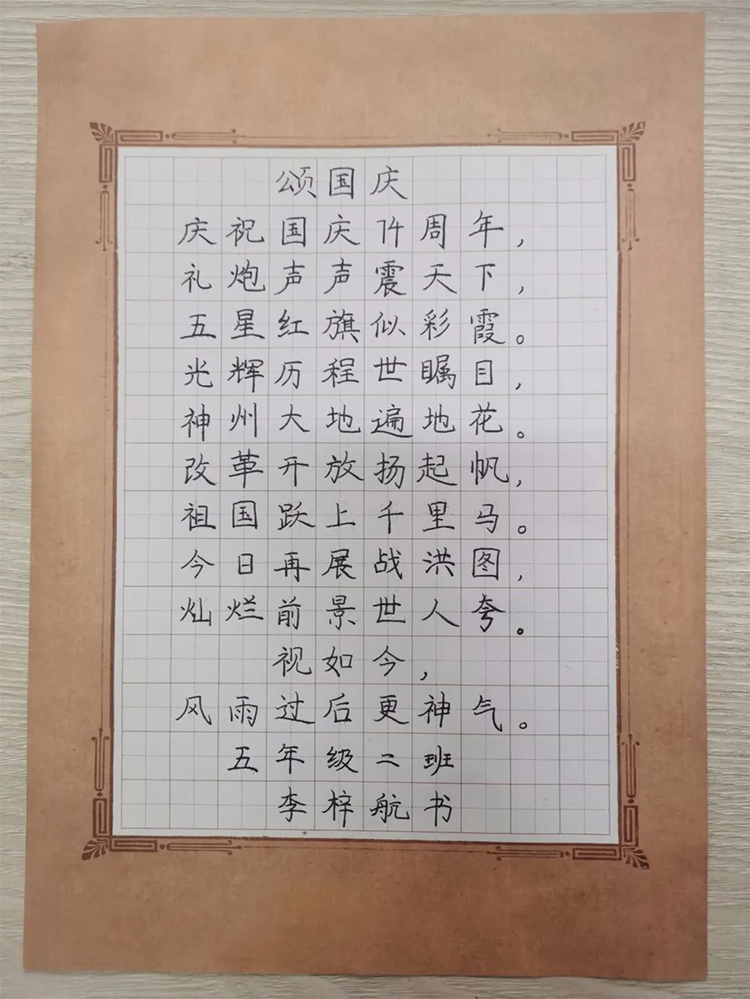 颂国庆
庆祝国庆74周年，
礼炮声声震天下，
五星红旗似彩霞。
光辉历程世瞩目，
神州大地遍地花。
改革开放扬起帆，
祖国跃上千里马。
今日再展战洪图，
灿烂前景世人夸。
视如今，
风雨过后更神气。
五年级二班
李梓航书